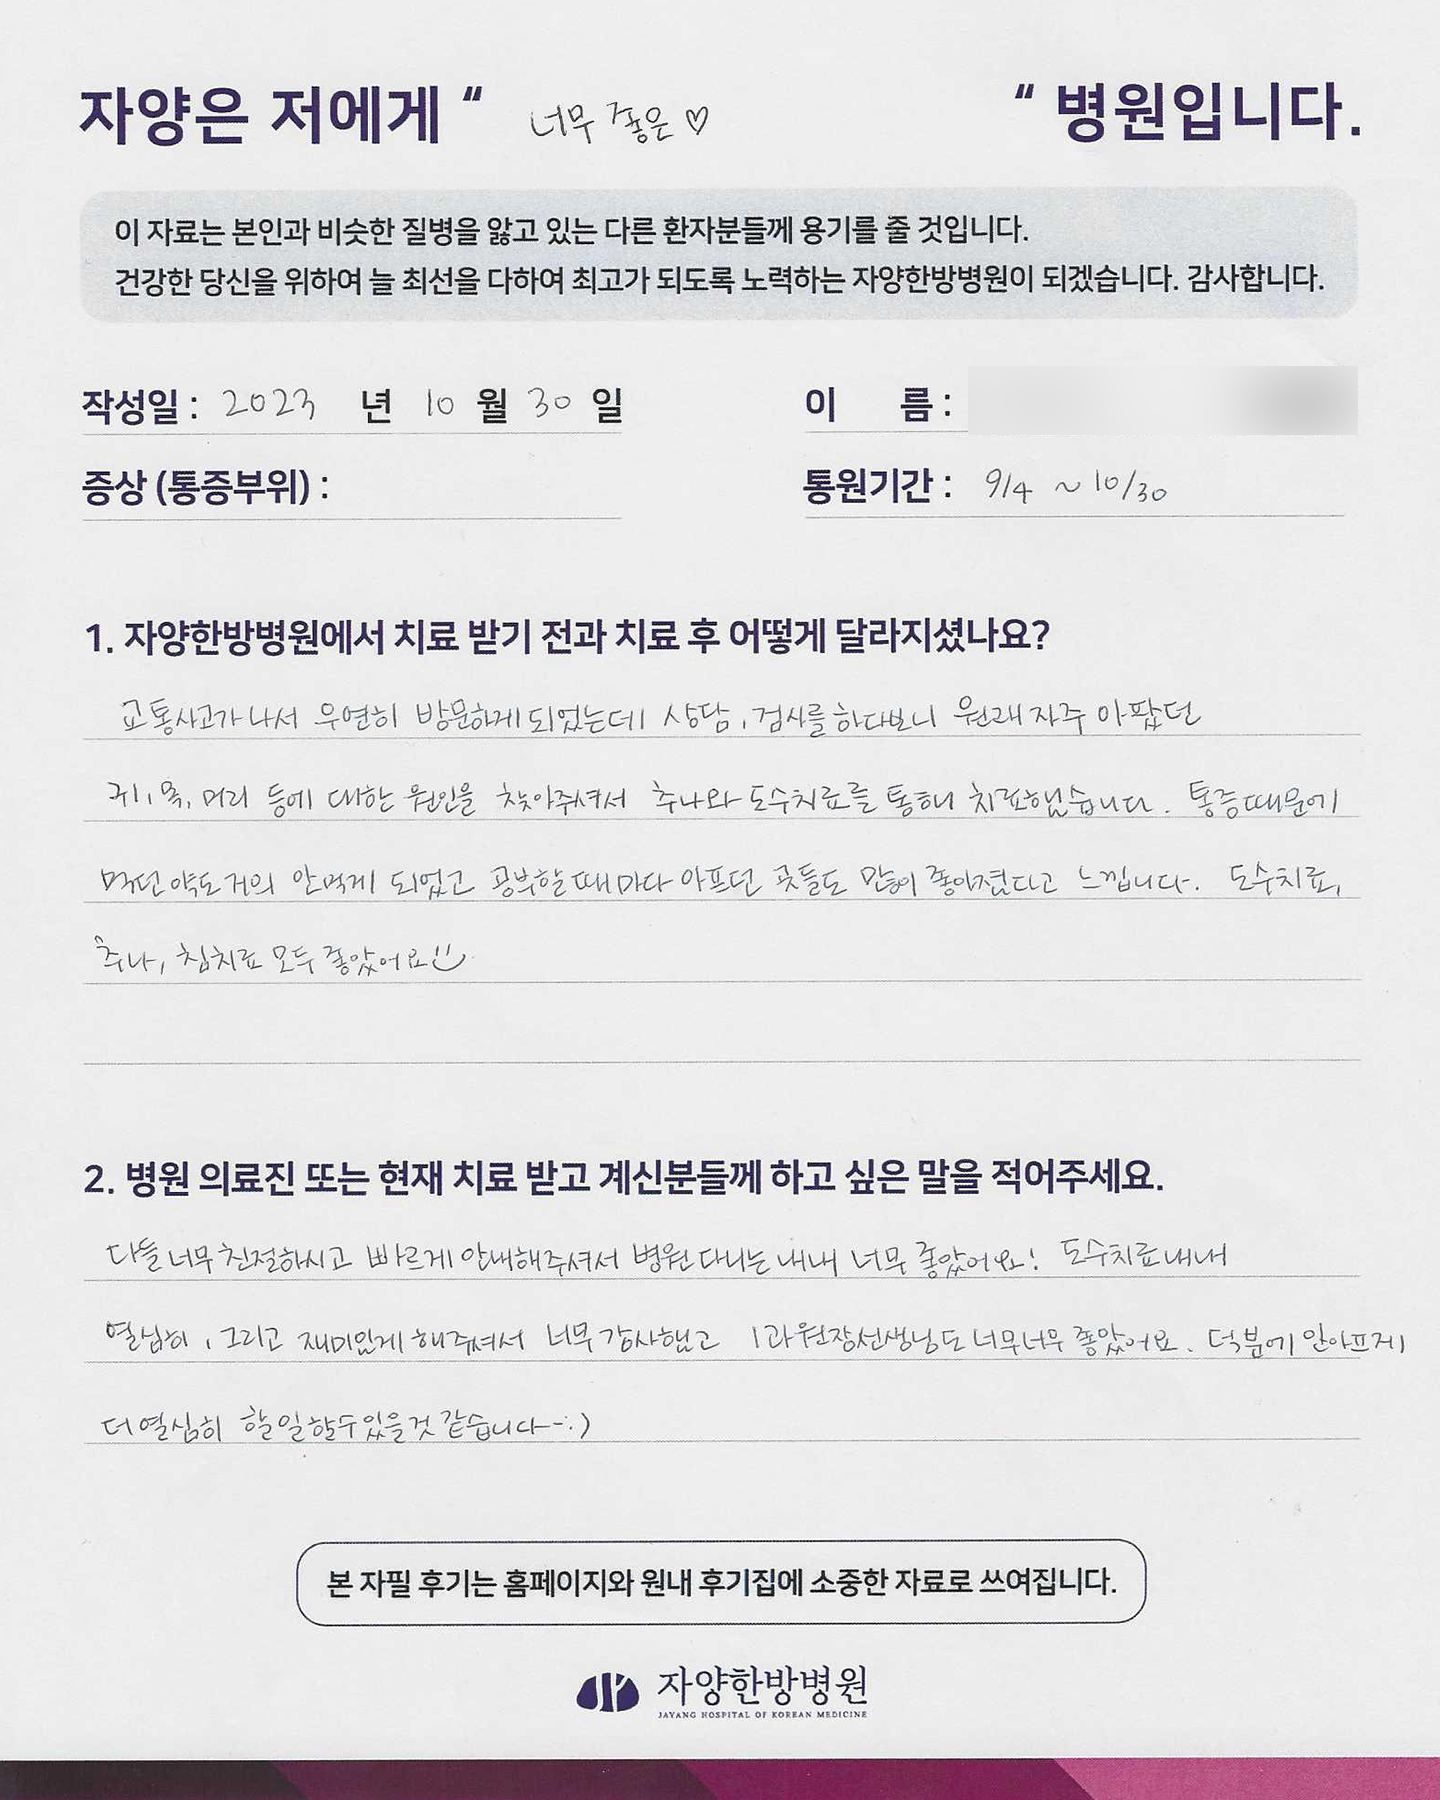 자양은 저에게 “ 너무 좋은 ♡ “ 병원입니다.
이 자료는 본인과 비슷한 질병을 앓고 있는 다른 환자분들께 용기를 줄 것입니다.
건강한 당신을 위하여 늘 최선을 다하여 최고가 되도록 노력하는 자양한방병원이 되겠습니다. 감사합니다.
작성일 : 2023 년 10 월 30 일 이 름 :
증상 (통증부위) : 통원기간 : 9/4 ~ 10/30
1. 자양한방병원에서 치료 받기 전과 치료 후 어떻게 달라지셨나요?
교통사고가 나서 우연히 방문하게 되었는데 상담, 검사를 하다보니 원래 자주 아팠던
귀, 목, 머리 등에 대한 원인을 찾아주셔서 추나와 도수치료를 통해 치료했습니다. 통증때문에
먹던 약도 거의 안먹게 되었고 공부할때마다 아프던 곳들도 많이 좋아졌다고 느낍니다. 도수치료,
추나, 침치료 모두 좋았어요!!
2. 병원 의료진 또는 현재 치료 받고 계신분들께 하고 싶은 말을 적어주세요.
다들 너무 친절하시고 빠르게 안내해주셔서 병원 다니는 내내 너무 좋았어요! 도수치료내내
열심히, 그리고 재미있게 해주셔서 너무 감사했고 1과 원장선생님도 너무너무 좋았어요. 덕분에 안아프게
더 열심히 할 일 할 수 있을것 같습니다~:)
본 자필 후기는 홈페이지와 원내 후기집에 소중한 자료로 쓰여집니다.
자양한방병원
JAYANG HOSPITAL OF KOREAN MEDICINE